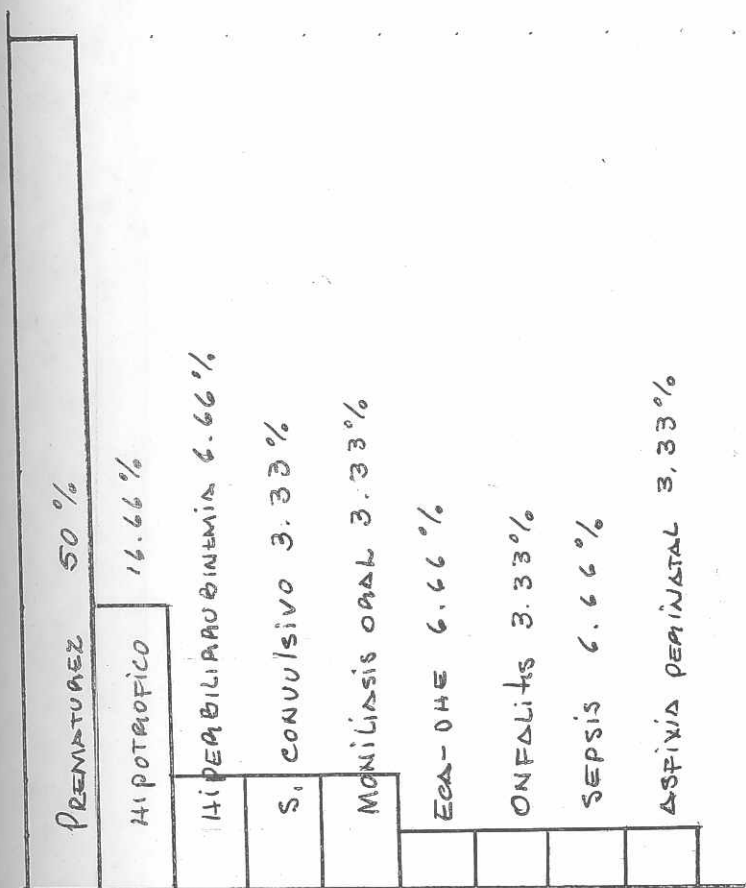 PREMATUREZ 50 %
HIPOTROFICO 16.66 %
HIPERBILIRRUBINEMIA 6.66 %
S. CONVULSIVO 3.33 %
MONILIASIS ORAL 3.33 %
ECA - DHE 6.66 %
ONFALITIS 3.33 %
SEPSIS 6.66 %
ASFIXIA PERINATAL 3.33 %